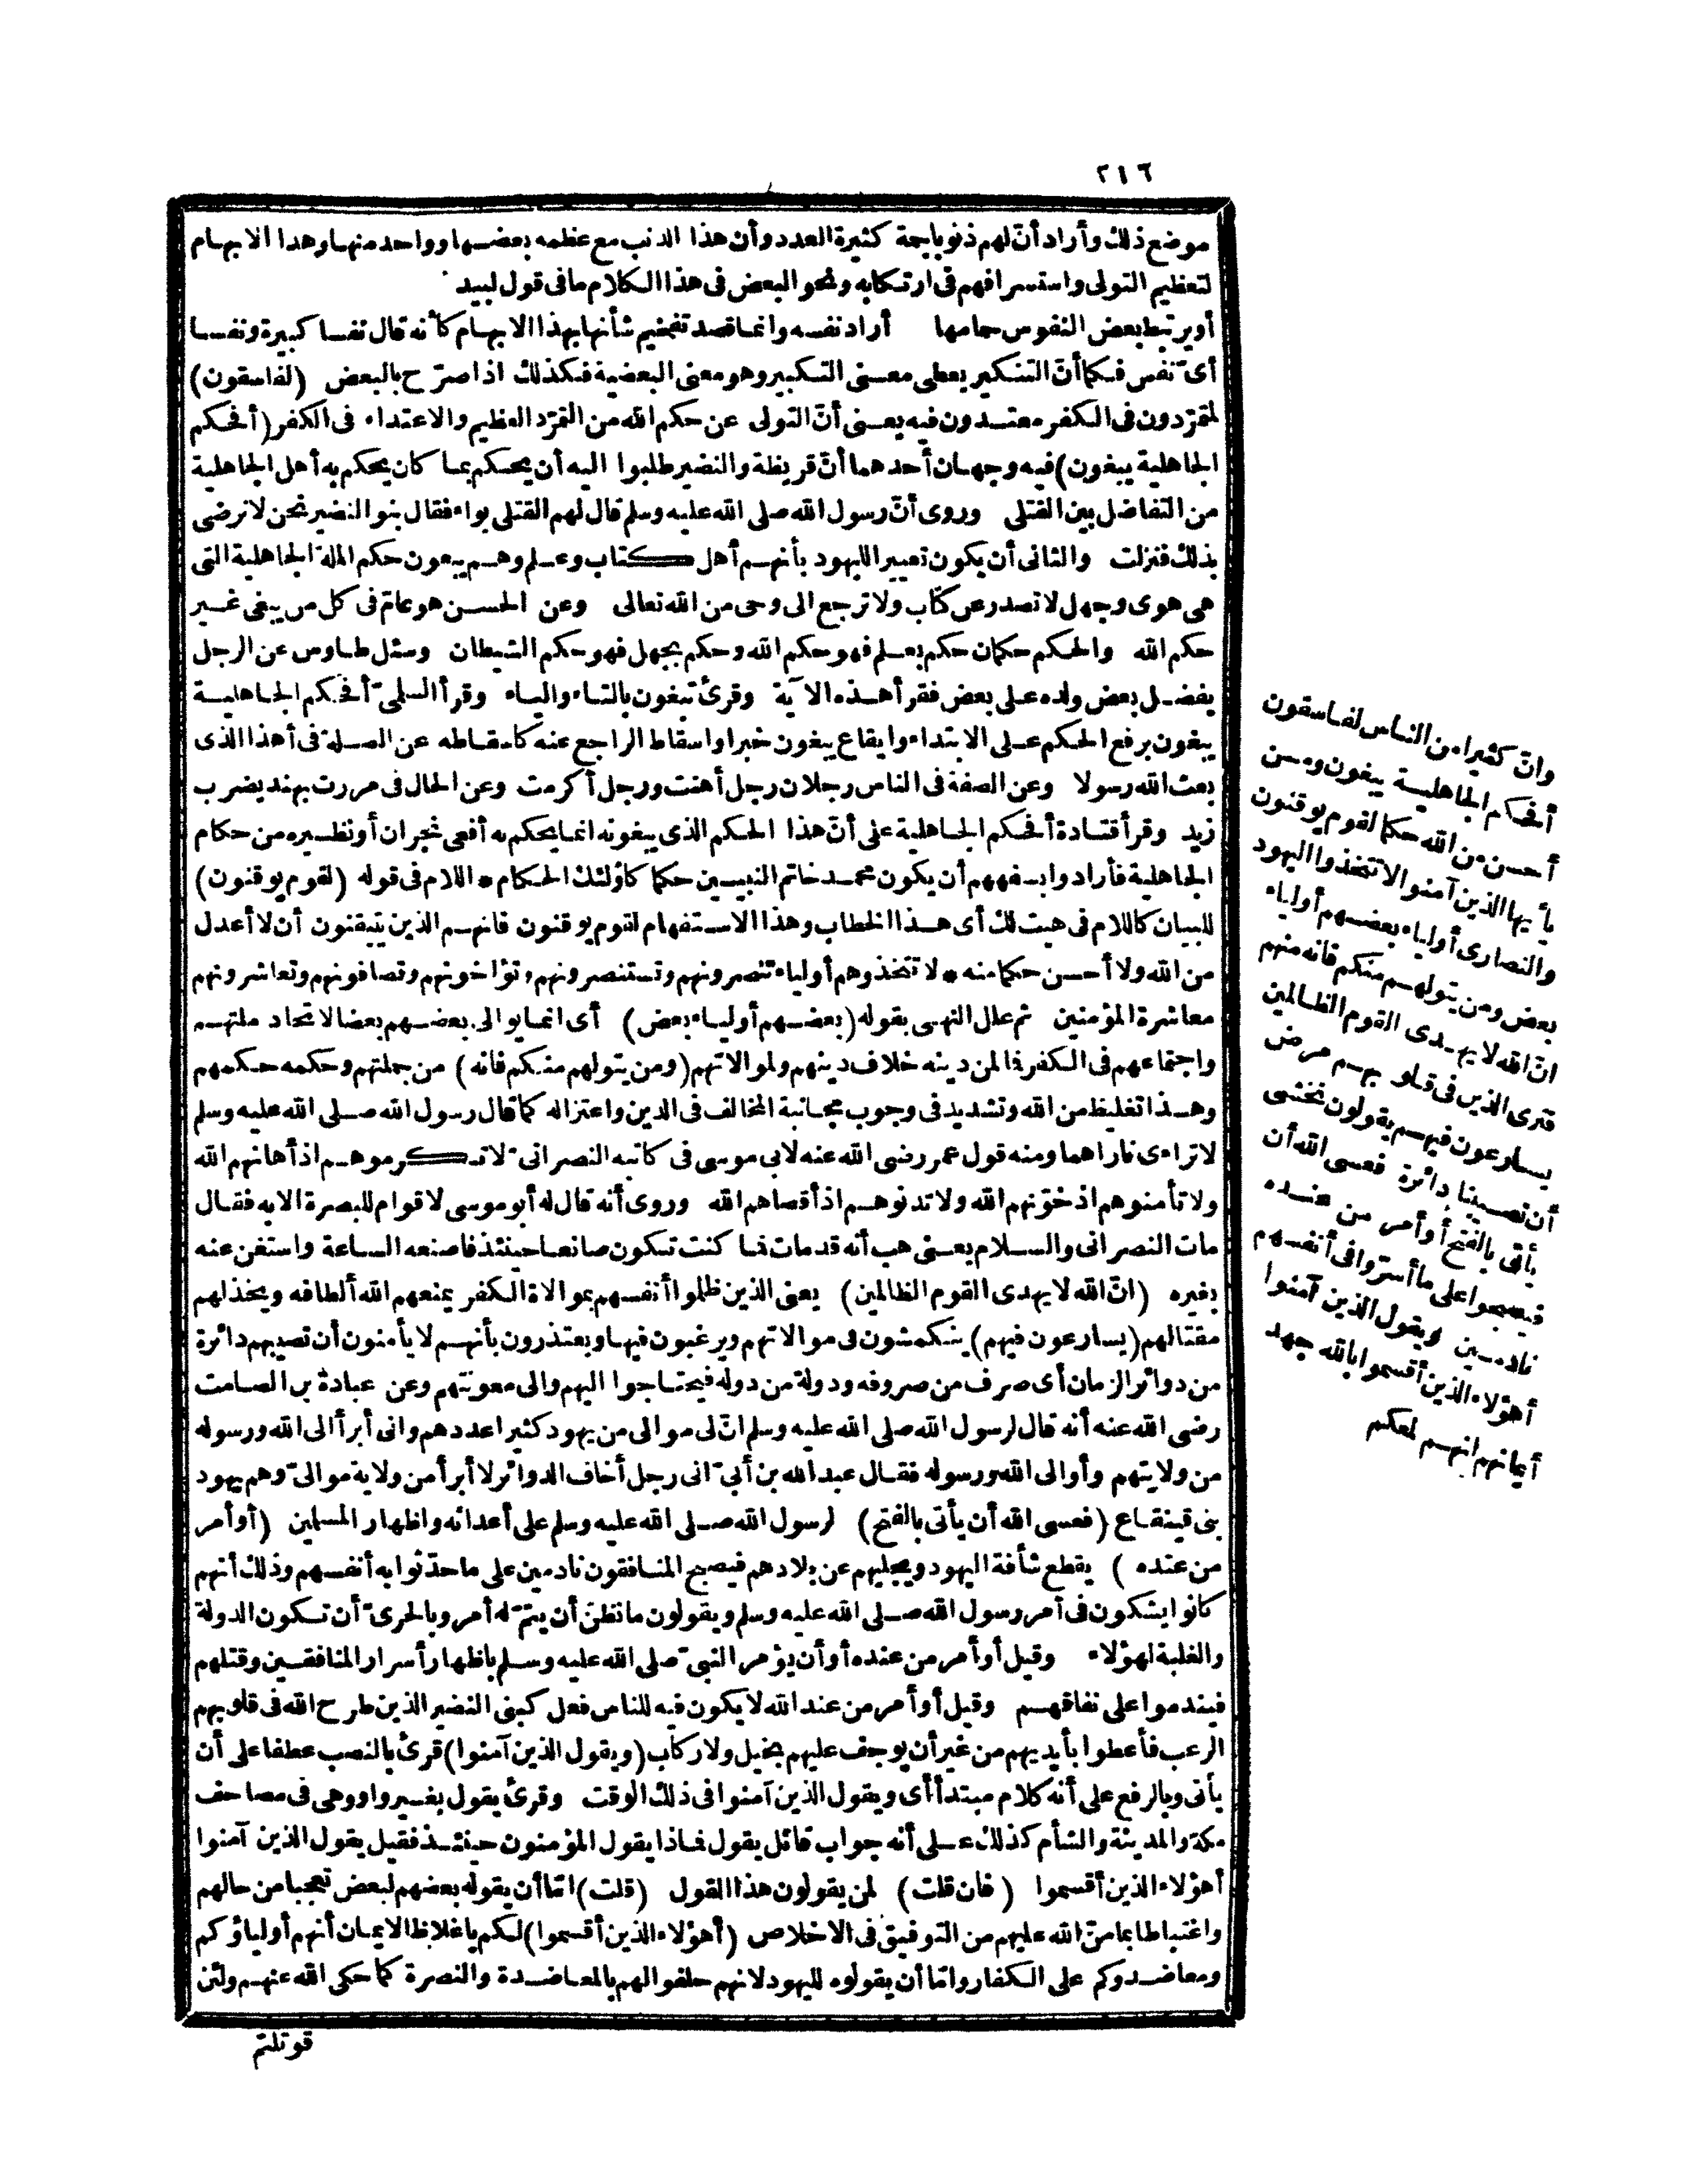 ٢١٦
موضع ذلك وأراد أنّ لهم ذنوبا جمة كثيرة العدد وأن هذا الذنب مع عظمه بعضها وواحد منها وهذا الابهام
لتعظيم التولى واستسرافهم فى ارتكابه ونحو البعض فى هذا الكلام ما فى قول لبيد
أو يرتبط بعض النفوس حمامها أراد نفسه وانما قصد تفخيم شأنها بهذا الابهام كأنه قال نفسا كبيرة ونفسا
أىّ نفس فكما أنّ التنكير يعطى معنى التكبير وهو معنى البعضية فكذلك اذا صرّح بالبعض (لفاسقون)
لمتمرّدون فى الكفر معتدون فيه يعنى أنّ التولى عن حكم الله من التمرّد العظيم والاعتداء فى الكفر (أفحكم
الجاهلية يبغون) فيه وجهان أحدهما أنّ قريظة والنضير طلبوا اليه أن يحكم بما كان يحكم به أهل الجاهلية
من التفاضل بين القتلى وروى أنّ رسول الله صلى الله عليه وسلم قال لهم القتلى بواء فقال بنو النضير نحن لا نرضى
بذلك فنزلت والثانى أن يكون تعييرا لليهود بأنهم أهل كتاب وعلم وهم يبغون حكم الملة الجاهلية التى
هى هوى وجهل لا تصدر عن كتاب ولا ترجع الى وحى من الله تعالى وعن الحسن هو عامّ فى كل من يبغى غير
حكم الله والحكم حكمان حكم بعلم فهو حكم الله وحكم بجهل فهو حكم الشيطان وسئل طاوس عن الرجل
يفضل بعض ولده على بعض فقرأ هذه الآية وقرئ تبغون بالتاء والياء وقرأ السلمىّ أفحكم الجاهلية
يبغون برفع الحكم على الابتداء وايقاع يبغون خبرا واسقاط الراجع عنه كاسقاطه عن الصلة فى أهذا الذى
بعث الله رسولا وعن الصفة فى الناس رجلان رجل أهنت ورجل أكرمت وعن الحال فى مررت بهند يضرب
زيد وقرأ قتادة أفحكم الجاهلية على أنّ هذا الحكم الذى يبغونه انما يحكم به أفعى نجران أو نظيره من حكام
الجاهلية فأرادوا بسفههم أن يكون محمد خاتم النبيين حكما كأولئك الحكام * اللام فى قوله (لقوم يوقنون)
للبيان كاللام فى هيت لك أى هذا الخطاب وهذا الاستفهام لقوم يوقنون فانهم الذين يتيقنون أن لا أعدل
من الله ولا أحسن حكما منه * لا تتخذوهم أولياء تنصرونهم وتستنصرونهم وتؤاخونهم وتصافونهم وتعاشرونهم
معاشرة المؤمنين ثم علل النهى بقوله (بعضهم أولياء بعض) أى انما يوالى بعضهم بعضا لاتحاد ملتهم
واجتماعهم فى الكفر فما لمن دينه خلاف دينهم ولموالاتهم (ومن يتولهم منكم فانه) من جملتهم وحكمه حكمهم
وهذا تغليظ من الله وتشديد فى وجوب مجانبة المخالف فى الدين واعتزاله كما قال رسول الله صلى الله عليه وسلم
لا تراءى ناراهما ومنه قول عمر رضى الله عنه لابى موسى فى كاتبه النصرانى لا تكرموهم اذ أهانهم الله
ولا تأمنوهم اذ خوّنهم الله ولا تدنوهم اذ أقصاهم الله وروى أنه قال له أبو موسى لا قوام للبصرة الا به فقال
مات النصرانى والسلام يعنى هب أنه قد مات فما كنت تكون صانعا حينئذ فاصنعه الساعة واستغن عنه
بغيره (انّ الله لا يهدى القوم الظالمين) يعنى الذين ظلموا أنفسهم بموالاة الكفر يمنعهم الله ألطافه ويخذلهم
مقتا لهم (يسارعون فيهم) ينكمشون فى موالاتهم ويرغبون فيها ويعتذرون بأنهم لا يأمنون أن تصيبهم دائرة
من دوائر الزمان أى صرف من صروفه ودولة من دوله فيحتاجوا اليهم والى معونتهم وعن عبادة بن الصامت
رضى الله عنه أنه قال لرسول الله صلى الله عليه وسلم انّ لى موالى من يهود كثيرا عددهم وانى أبرأ الى الله ورسوله
من ولايتهم وأوالى الله ورسوله فقال عبد الله بن أبىّ انى رجل أخاف الدوائر لا أبرأ من ولاية موالىّ وهم يهود
بنى قينقاع (فعسى الله أن يأتى بالفتح) لرسول الله صلى الله عليه وسلم على أعدائه واظهار المسلمين (أو أمر
من عنده) يقطع شأفة اليهود ويجليهم عن بلادهم فيصبح المنافقون نادمين على ما حدّثوا به أنفسهم وذلك أنهم
كانوا يشكون فى أمر رسول الله صلى الله عليه وسلم ويقولون ما نظنّ أن يتمّ له أمر وبالحرىّ أن تكون الدولة
والغلبة لهؤلاء وقيل أو أمر من عنده أو أن يؤمر النبىّ صلى الله عليه وسلم باظهار أسرار المنافقين وقتلهم
فيندموا على نفاقهم وقيل أو أمر من عند الله لا يكون فيه للناس فعل كبنى النضير الذين طرح الله فى قلوبهم
الرعب فأعطوا بأيديهم من غير أن يوجف عليهم بخيل ولا ركاب (ويقول الذين آمنوا) قرئ بالنصب عطفا على أن
يأتى وبالرفع على أنه كلام مبتدأ أى ويقول الذين آمنوا فى ذلك الوقت وقرئ يقول بغير واو وهى فى مصاحف
مكة والمدينة والشأم كذلك على أنه جواب قائل يقول فماذا يقول المؤمنون حينئذ فقيل يقول الذين آمنوا
أهؤلاء الذين أقسموا (فان قلت) لمن يقولون هذا القول (قلت) امّا أن يقوله بعضهم لبعض تعجبا من حالهم
واغتباطا بما منّ الله عليهم من التوفيق فى الاخلاص (أهؤلاء الذين أقسموا) لكم باغلاظ الايمان أنهم أولياؤكم
ومعاضدوكم على الكفار وامّا أن يقولوه لليهود لانهم حلفوا لهم بالمعاضدة والنصرة كما حكى الله عنهم ولئن
قوتلتم
وانّ كثيرا من الناس لفاسقون
أفحكم الجاهلية يبغون ومن
أحسن من الله حكما لقوم يوقنون
يأيها الذين آمنوا لا تتخذوا اليهود
والنصارى أولياء بعضهم أولياء
بعض ومن يتولهم منكم فانه منهم
انّ الله لا يهدى القوم الظالمين
فترى الذين فى قلوبهم مرض
يسارعون فيهم يقولون نخشى
أن تصيبنا دائرة فعسى الله أن
يأتى بالفتح أو أمر من عنده
فيصبحوا على ما أسرّوا فى أنفسهم
نادمين ويقول الذين آمنوا
أهؤلاء الذين أقسموا بالله جهد
أيمانهم انهم لمعكم